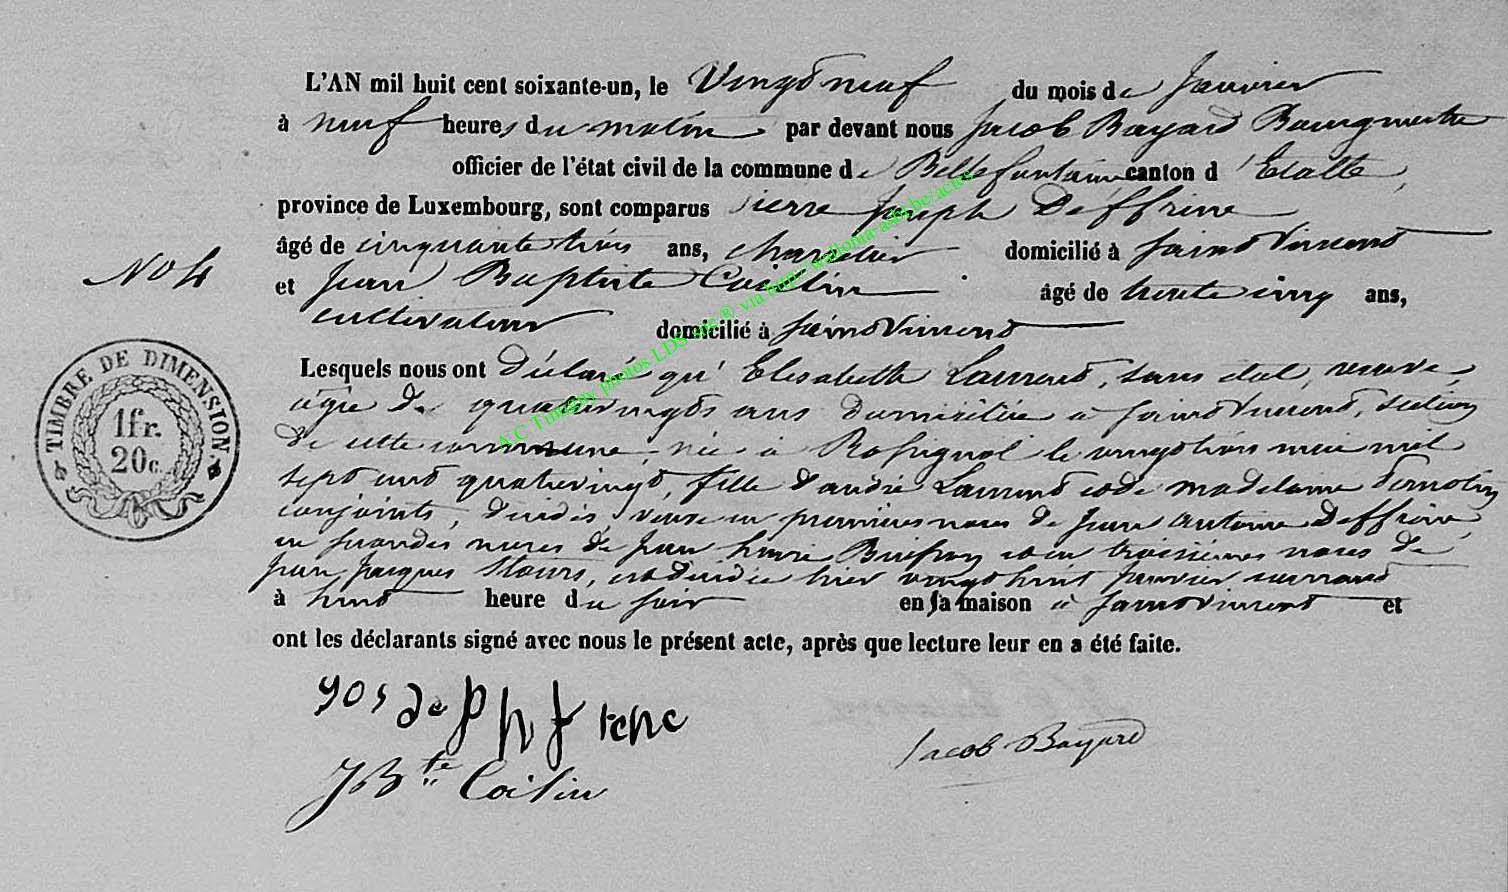 L'AN mil huit cent soixante-un, le vingt neuf du mois de Janvier
à neuf heures du matin par devant nous Jacob Bayard Bourgmestre
officier de l'état civil de la commune de Bellefontaine canton d'Etalle,
province de Luxembourg, sont comparus Pierre Joseph Deffrène
âgé de cinquante trois ans, domicilié à Saint Vincent
No 4
et Jean Baptiste Coislin âgé de trente cinq ans,
cultivateur domicilié à Saint Vincent
Lesquels nous ont Déclaré qu' Elisabette Laurend, sans état veuve,
TIMBRE DE DIMENSION
1 fr. 20 c.
agée de quatrevingts ans domiciliée à Saint Vincent, section
de cette commune, née à Rossignol le vingt trois mai mil
sept cent quatrevingt, fille d'andré Laurend et de madelaine
conjoints, décédés, veuve en premières noces de Jean antoine Deffrène,
en secondes noces de Jean et en troisièmes noces de
Jean Jacques est décédée hier vingt huit Janvier courrant
à huit heure du soir en sa maison à Saint Vincent et
ont les déclarants signé avec nous le présent acte, après que lecture leur en a été faite.
Jacob Bayard
JBte Coislin
A.C Tintigny photos LDS via http://wallonia-asbl.be/actes